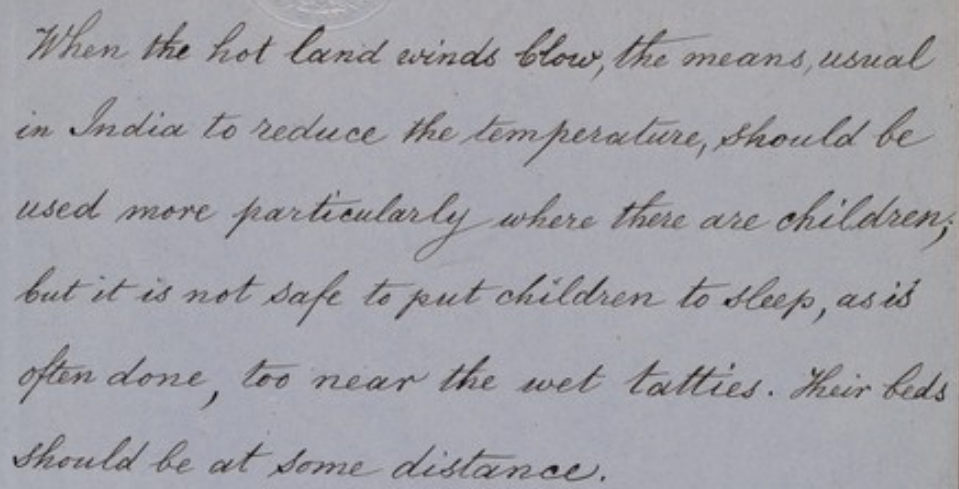 When the hot land winds blow, the means, usual
in India to reduce the temperature, should be
used more particularly where there are children;
but it is not safe to put children to sleep, as is
often done, too near the wet tatties. Their beds
should be at some distance.